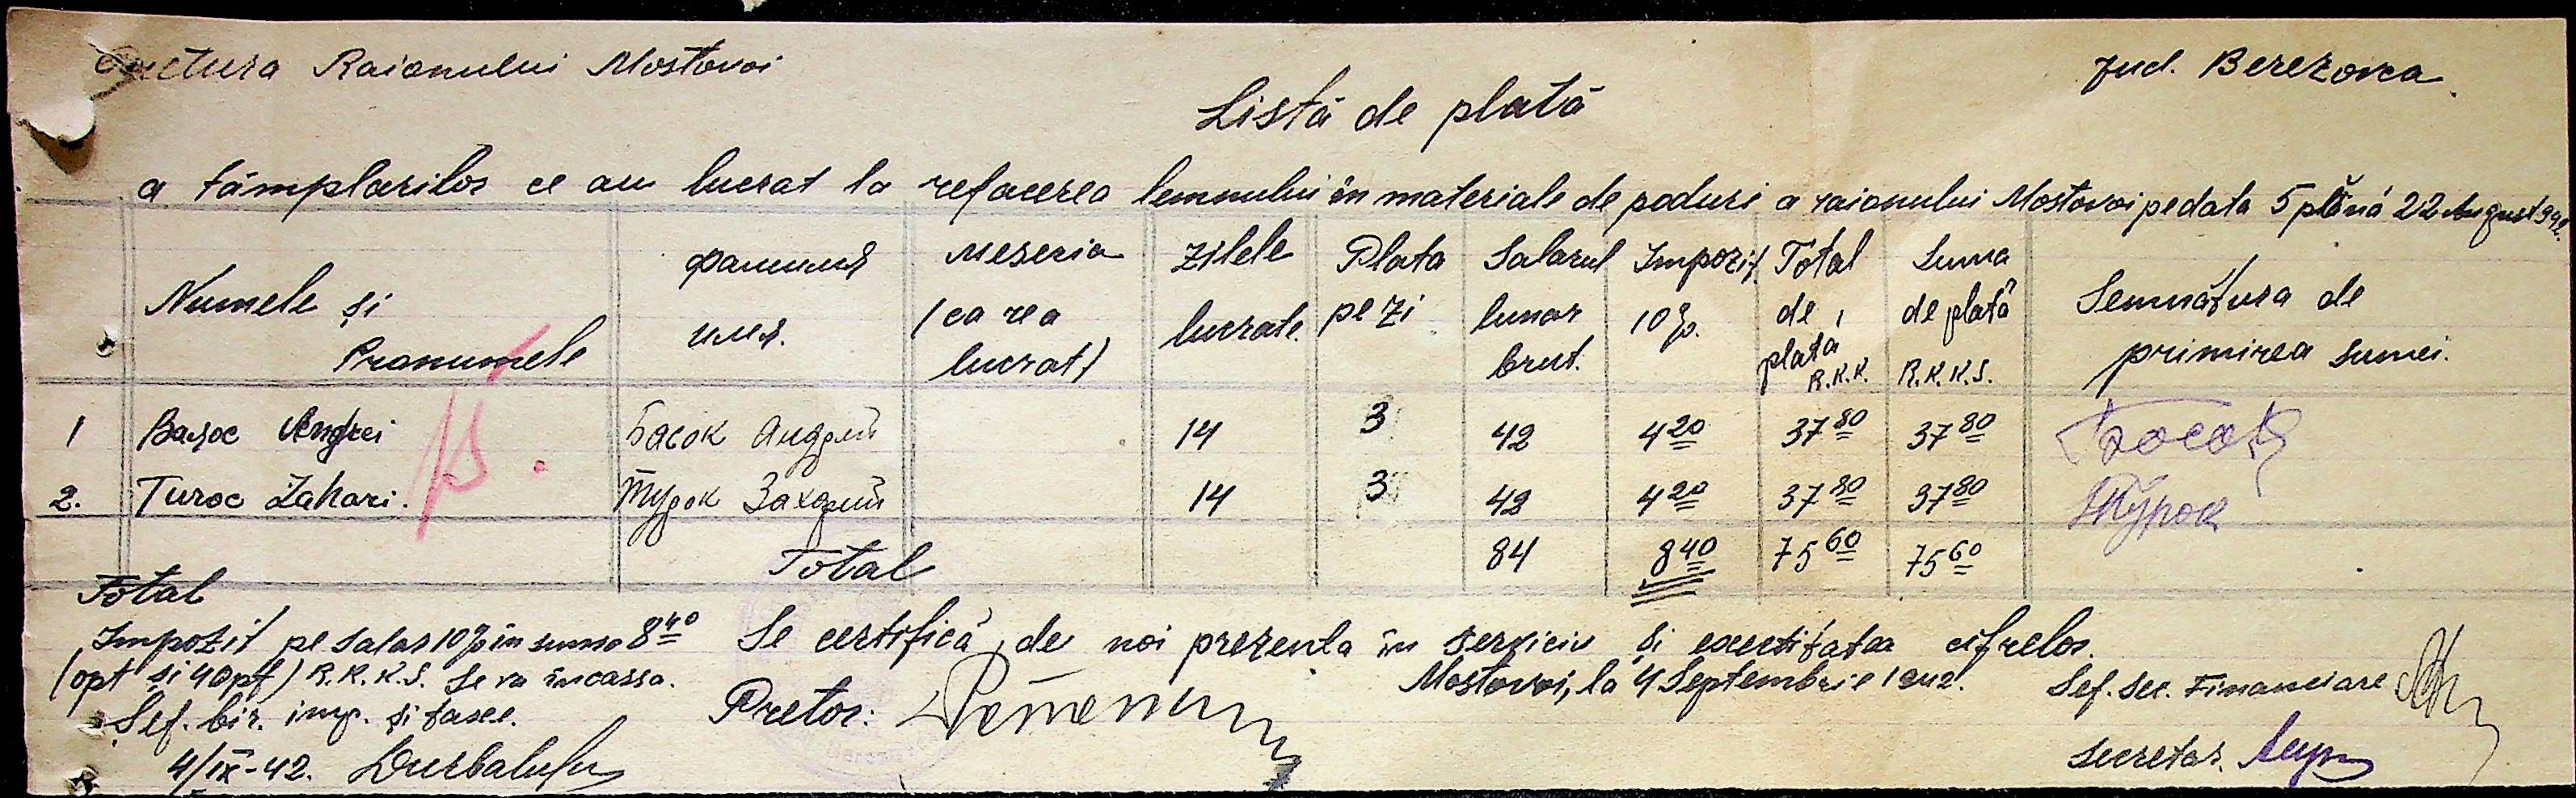 Pretura Raionului Mostovoi jud. Berezovca
Listă de plată
a tâmplarilor ce au lucrat la refacerea lemnului în materiale de poduri a raionului Mostovoi pe data 5 până 22 August 942.
Numele și Pronumele фамилия имя. Meseria (ca rea lucrat) Zilele lucrate. Plata pe zi Salarul lunar brut. Impozit 10%. Total de plată R.K.K. Suma de plată R.K.K.S. Semnătura de primirea sumei.
1 Basoc Andrei Басок Андрей 14 3 42 4 20 37 80 37 80 Басок
2. Turoc Zahari. Турок Захарий 14 3 42 4 20 37 80 37 80 Турок
Total 84 8 40 75 60 75 60
Total
Impozit pe salar 10% în suma 8 40 Se certifică de noi prezenta în serviciu și exactitatea cifrelor.
(opt și 40 pf) R.K.K.S. se va încassa. Mostovoi, la 4 Septembrie 1942. Șef. Sec. Financiare
Șef. bir. imp. și taxe. Pretor:
4/IX-42. Secretar.